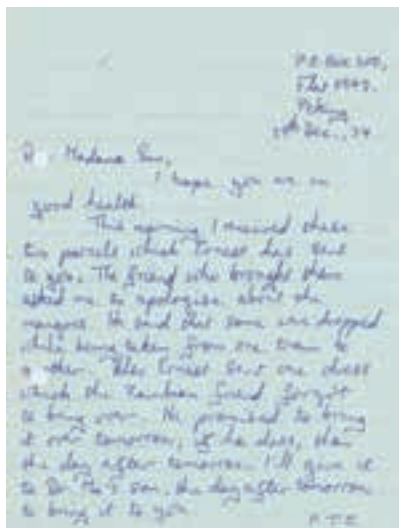 P.O. Box 
Peking
Dec., 74
Madame Sun,
I hope you are in
good health.
This morning I received these
two parcels which Ernest has sent
to you. The friend who brought them
asked me to apologise about the
mangoes. He said that some were dropped
while being taken from one train to
another. Ernest sent one dress
which the Zambian friend forgot
to bring over. He promised to bring
it over tomorrow, if he does, then
the day after tomorrow I'll give it
to Dr. Ma's son, the day after tomorrow
to bring it to you.
P.T.O.